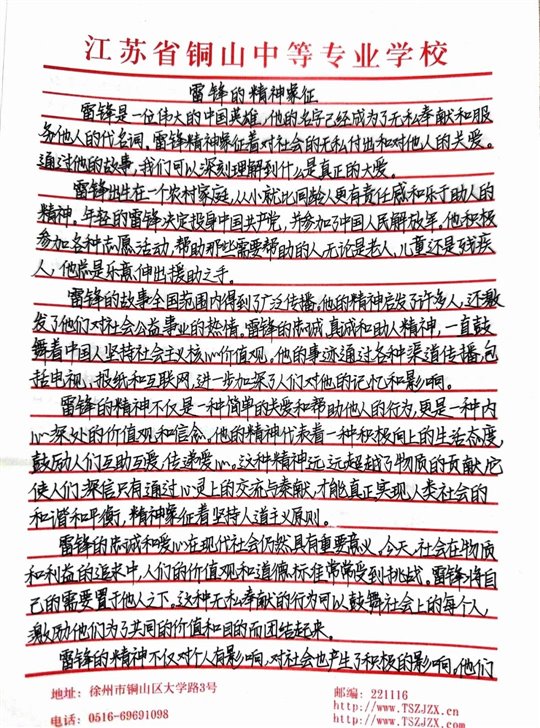 江苏省铜山中等专业学校
雷锋的精神象征
雷锋是一位伟大的中国英雄，他的名字已经成为了无私奉献和服
务他人的代名词。雷锋精神象征着对社会的无私付出和对他人的关爱。
通过他的故事，我们可以深刻理解到什么是真正的大爱。
雷锋出生在一个农村家庭，从小就比同龄人更有责任感和乐于助人的
精神。年轻的雷锋决定投身中国共产党，并参加了中国人民解放军。他积极
参加各种志愿活动，帮助那些需要帮助的人，无论是老人，儿童还是残疾
人，他总是乐意伸出援助之手。
雷锋的故事全国范围内得到了广泛传播。他的精神启发了许多人，还激
发了他们对社会公益事业的热情。雷锋的忠诚，真诚和助人精神，一直鼓
舞着中国人坚持社会主义核心价值观。他的事迹通过各种渠道传播，包
括电视、报纸和互联网，进一步加深了人们对他的记忆和影响。
雷锋的精神不仅是一种简单的关爱和帮助他人的行为，更是一种内
心深处的价值观和信念。他的精神代表着一种积极向上的生活态度，
鼓励人们互助互爱，传递爱心。这种精神远远超越了物质的贡献，它
使人们深信只有通过心灵上的交流与奉献，才能真正实现人类社会的
和谐和平衡，精神象征着坚持人道主义原则。
雷锋的忠诚和爱心在现代社会仍然具有重要意义。今天，社会在物质
和利益的追求中，人们的价值观和道德标准常常受到挑战。雷锋将自
己的需要置于他人之下。这种无私奉献的行为可以鼓舞社会上的每个人，
激励他们为了共同的价值和目的而团结起来。
雷锋的精神不仅对个人有影响，对社会也产生了积极的影响。他们
地址：徐州市铜山区大学路3号
邮编：221116
http://www.TSZJZX.cn
电话：0516-69691098
http://www.TSZJZX.com